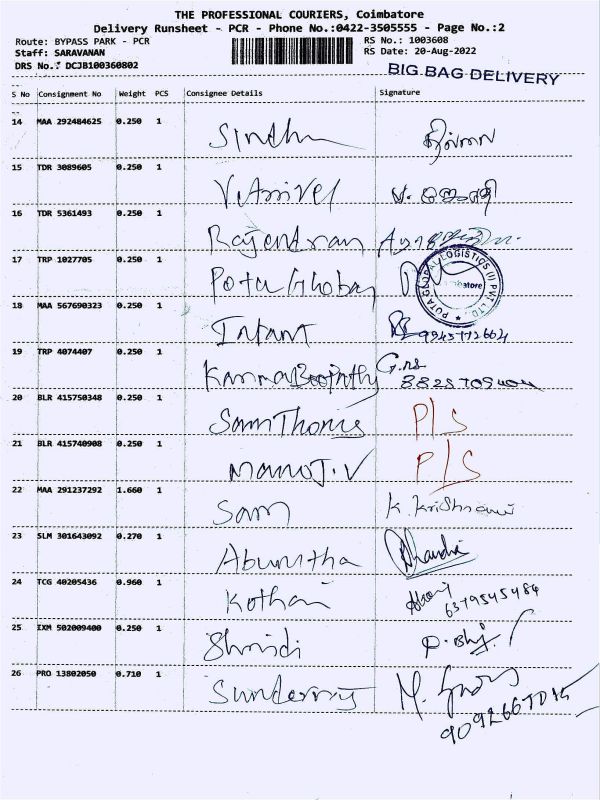 THE PROFESSIONAL COURIERS, Coimbatore
Delivery Runsheet - PCR - Phone No.:0422-3505555 - Page No.:2
Route: BYPASS PARK - PCR RS No.: 1003608
Staff: SARAVANAN RS Date: 20-Aug-2022
DRS No.: DCJB100360802
BIG BAG DELIVERY
S No Consignment No Weight PCS Consignee Details Signature
14 MAA 292484625 0.250 1 Sindhu
15 TDR 3089605 0.250 1 Vetrivel
16 TDR 5361493 0.250 1 Rajendran
17 TRP 1027705 0.250 1 Pota Global
POTA GLOBAL LOGISTICS (I) PVT. LTD.
18 MAA 567690323 0.250 1 Infant 9943772664
19 TRP 4074407 0.250 1 Kanna Boopathy
20 BLR 415750348 0.250 1 Sam Thomis P/S
21 BLR 415740908 0.250 1 Manoj.V P/S
22 MAA 291237292 1.660 1 Sam K. Krishnani
23 SLM 301643092 0.270 1 Abunitha
24 TCG 40205436 0.960 1 Kothai 6379545484
25 IXM 502009400 0.250 1 Shridi
26 PRO 13802050 0.710 1